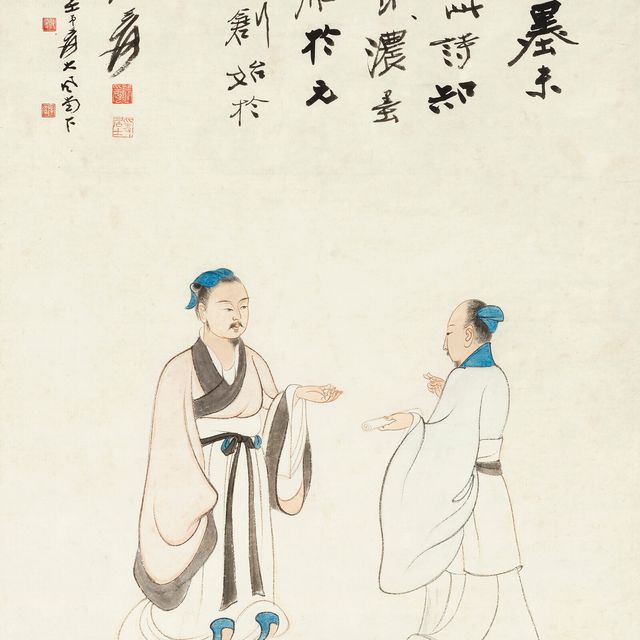 墨未
此詩知
濃墨
於元
創始於
爰
午爰大風堂下